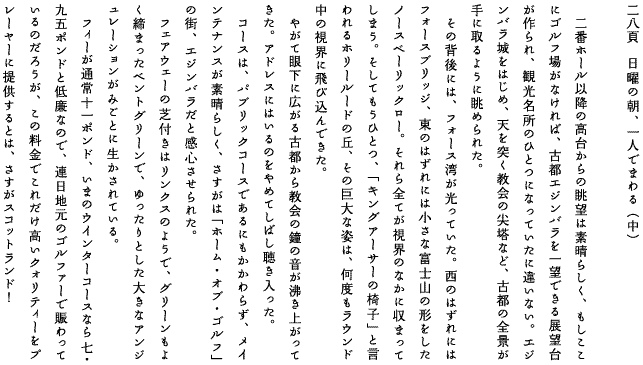 二八頁　日曜の朝、一人でまわる（中）
　二番ホール以降の高台からの眺望は素晴らしく、もしここ
にゴルフ場がなければ、古都エジンバラを一望できる展望台
が作られ、観光名所のひとつになっていたに違いない。エジ
ンバラ城をはじめ、天を突く教会の尖塔など、古都の全景が
手に取るように眺められた。
　その背後には、フォース湾が光っていた。西のはずれには
フォースブリッジ、東のはずれには小さな富士山の形をした
ノースベーリックロー。それら全てが視界のなかに収まって
しまう。そしてもうひとつ、「キングアーサーの椅子」と言
われるホリールードの丘、その巨大な姿は、何度もラウンド
中の視界に飛び込んできた。
　やがて眼下に広がる古都から教会の鐘の音が沸き上がって
きた。アドレスにはいるのをやめてしばし聴き入った。
　コースは、パブリックコースであるにもかかわらず、メイ
ンテナンスが素晴らしく、さすがは「ホーム・オブ・ゴルフ」
の街、エジンバラだと感心させられた。
　フェアウェーの芝付きはリンクスのようで、グリーンもよ
く締まったベントグリーンで、ゆったりとした大きなアンジ
ュレーションがみごとに生かされている。
　フィーが通常十一ポンド、いまのウインターコースなら七・
九五ポンドと低廉なので、連日地元のゴルファーで賑わって
いるのだろうが、この料金でこれだけ高いクォリティーをプ
レーヤーに提供するとは、さすがスコットランド！